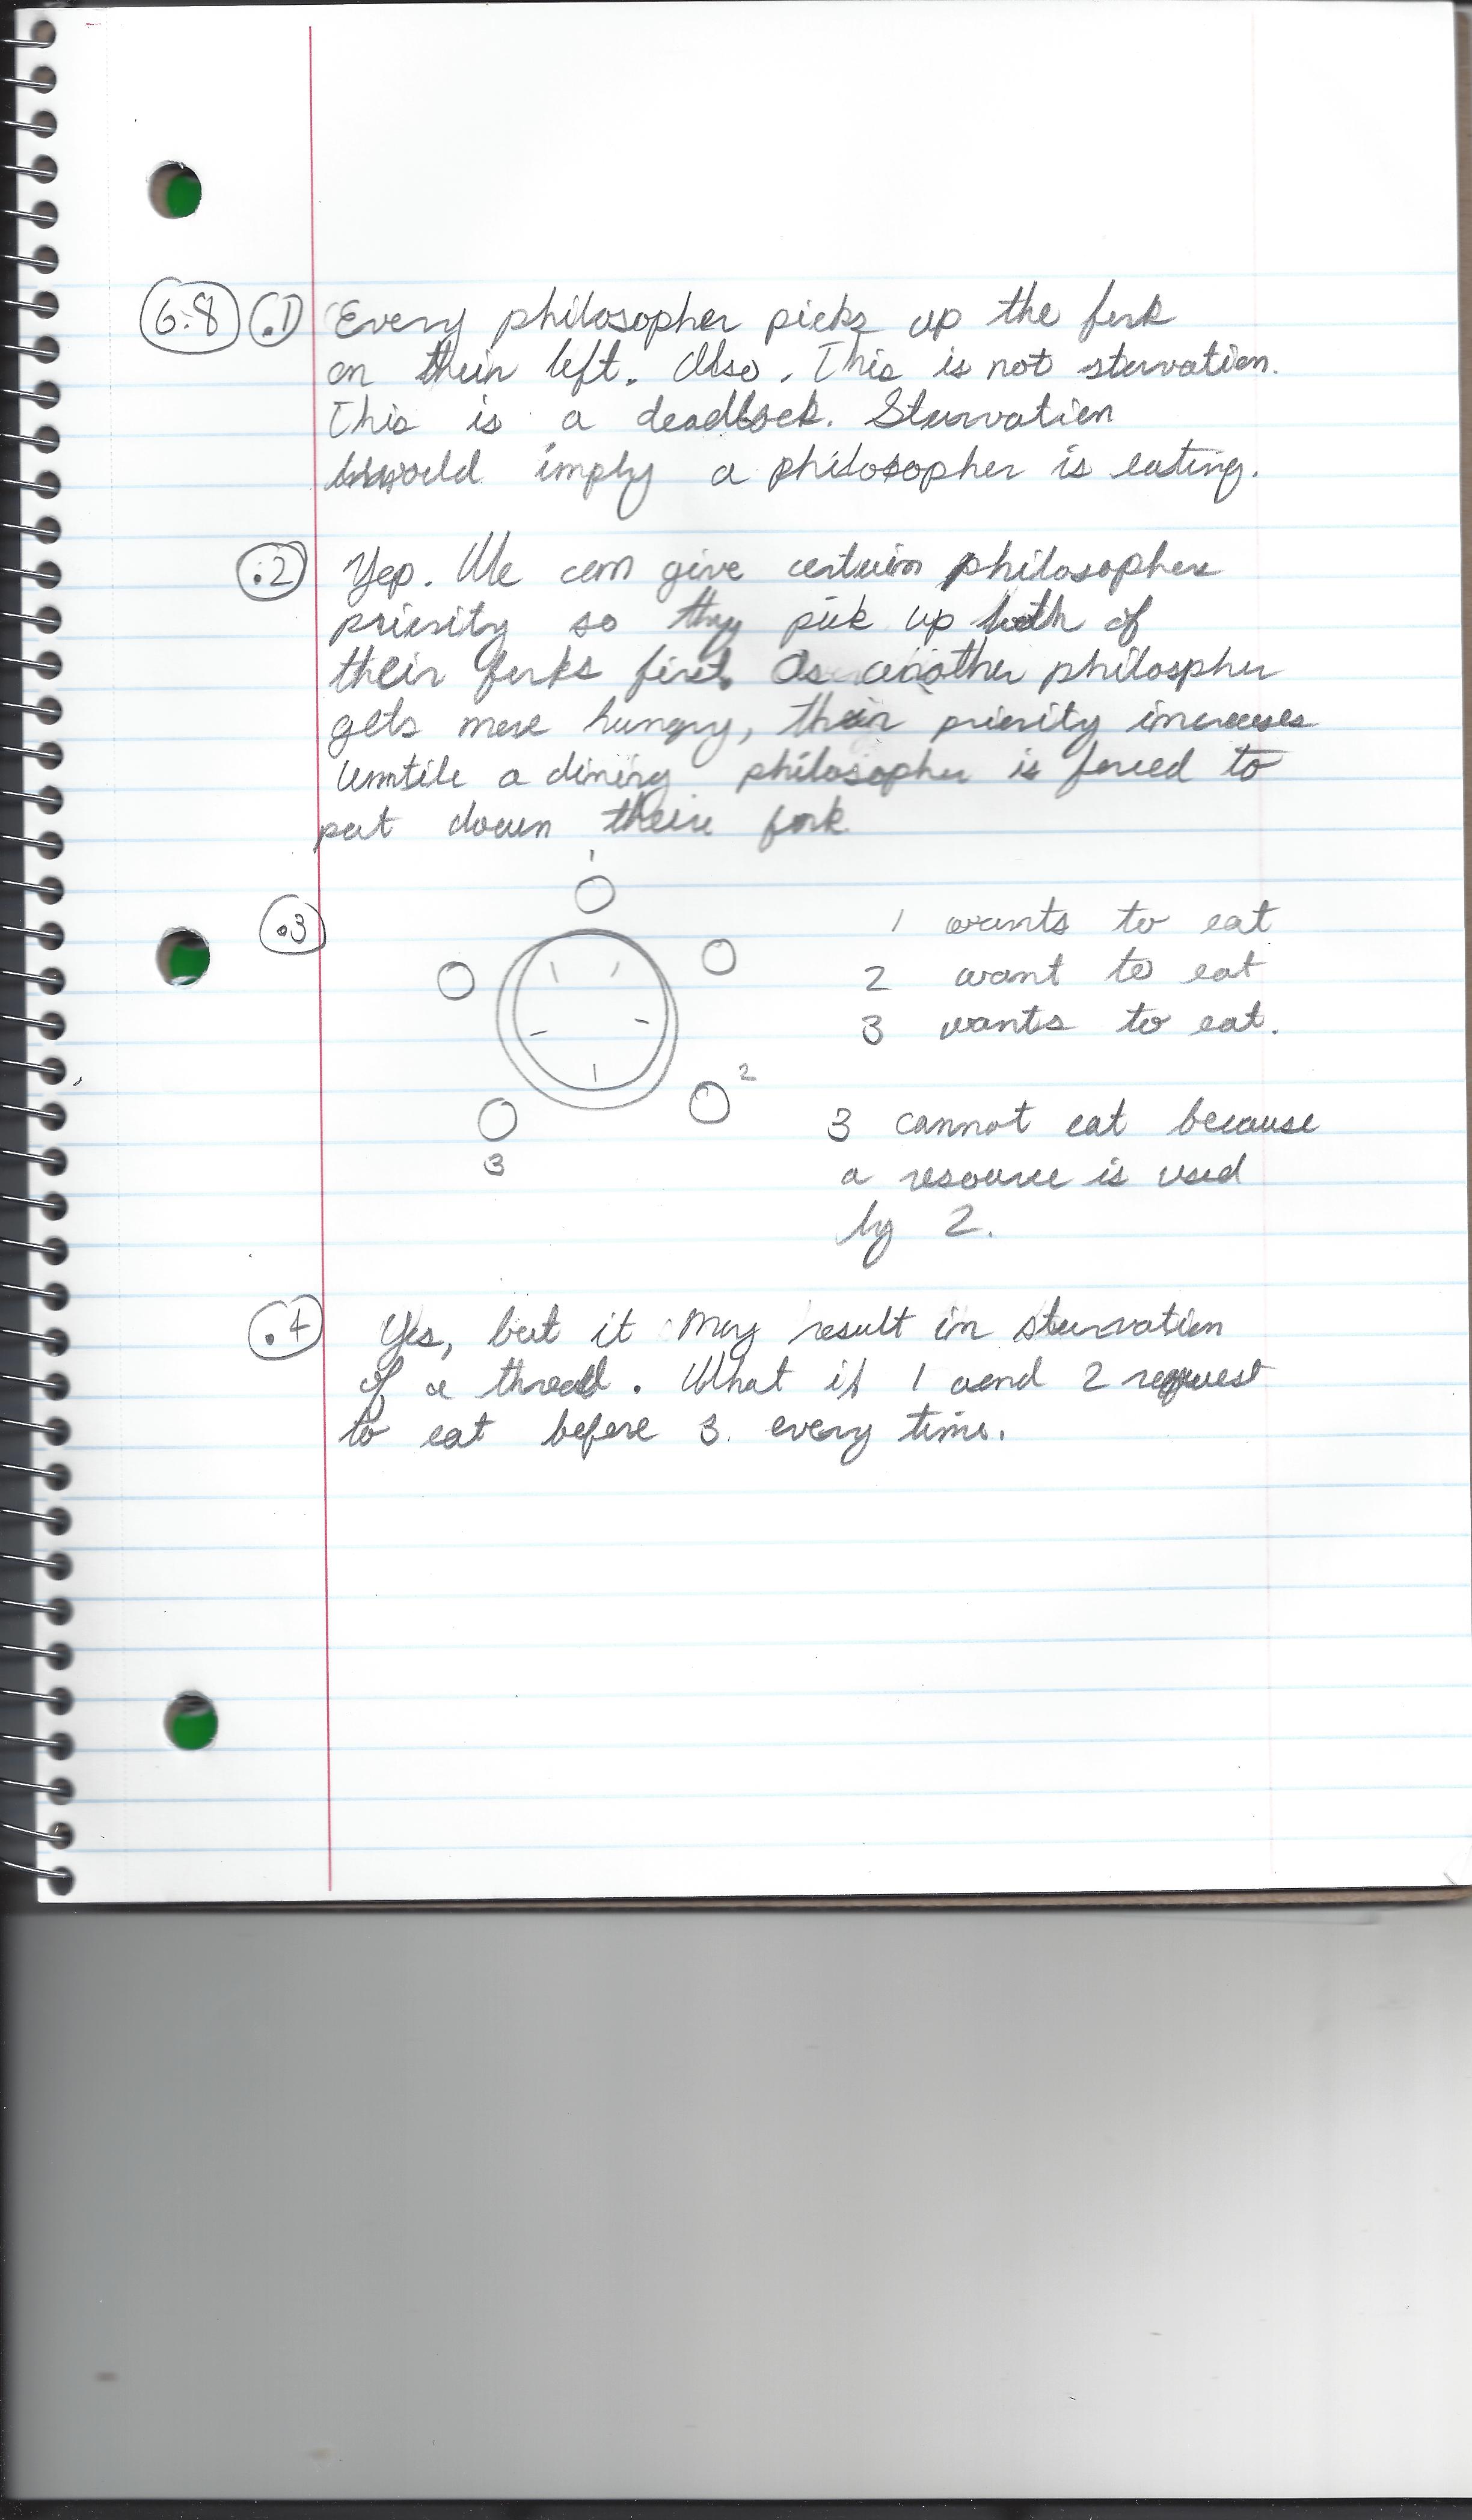 6.8 .1 Every philosopher picks up the fork
on their left. Also. This is not starvation.
This is a deadlock. Starvation
would imply a philosopher is eating.
.2 Yep. We can give certain philosophers
priority so they pick up both of
their forks first. As another philospher
gets more hungry, their priority increases
untile a dining philosopher is forced to
put down their fork
1
.3 1 wants to eat
2 want to eat
3 wants to eat.
2
3 cannot eat because
3
a resource is used
by 2.
.4 Yes, but it may result in starvation
of a thread. What if 1 and 2 request
to eat before 3. every time.